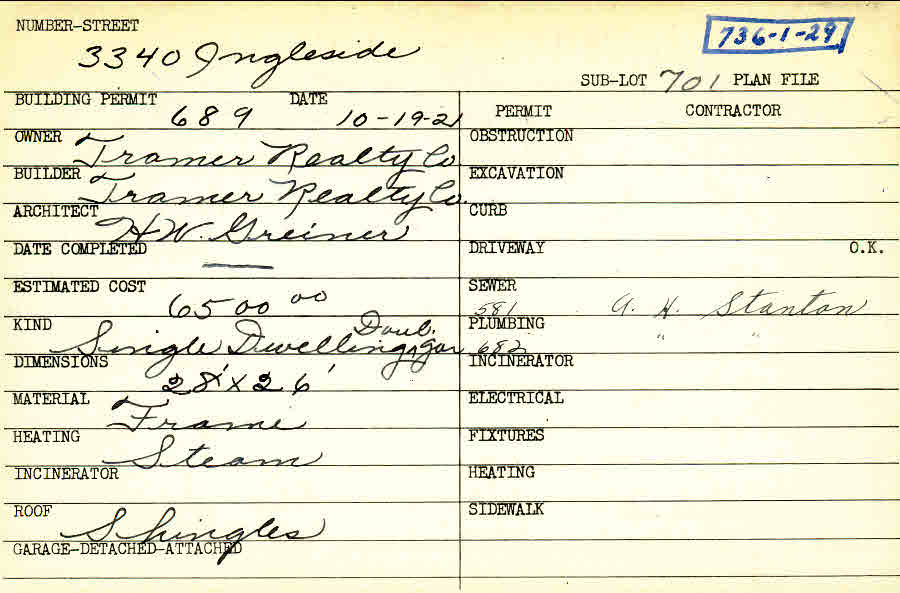 NUMBER-STREET
3340 Ingleside
736-1-29
SUB-LOT 701 PLAN FILE
BUILDING PERMIT 689 DATE 10-19-21
OWNER Tramer Realty Co.
BUILDER Tramer Realty Co.
ARCHITECT H.W. Greiner
DATE COMPLETED —
ESTIMATED COST 6500 00
KIND Single Dwelling, Doub. gar
DIMENSIONS 28' X 26'
MATERIAL Frame
HEATING Steam
INCINERATOR
ROOF Shingles
GARAGE-DETACHED-ATTACHED
PERMIT CONTRACTOR
OBSTRUCTION
EXCAVATION
CURB
DRIVEWAY O.K.
SEWER 581 A. H. Stanton
PLUMBING 682 " "
INCINERATOR
ELECTRICAL
FIXTURES
HEATING
SIDEWALK